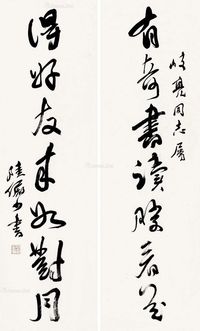 同志屬
有奇書讀勝看花
得好友来如對月
陸儼少書